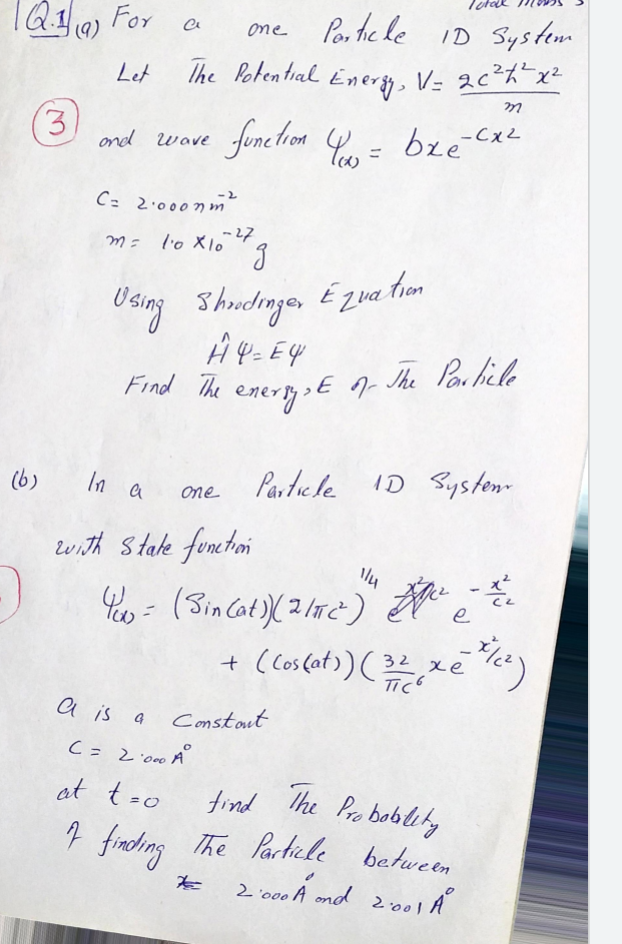 Total
Q.1 (a) For a one Particle 1D System
Let The Potential Energy, V = 2c²ħ²x² / m
③
and wave function Ψ(x) = bxe^-Cx2
C = 2.000nm^-2
m = 1.0 X10^-27 g
Using Shrodinger Equation
ĤΨ = EΨ
Find The energy, E of The Particle
(b) In a one Particle 1D System
with State function
Ψ(x) = (Sin(at))(2/πc²)^1/4 e^-x²/c2
+ (Cos(at))(32/πc⁶ xe^-x²/c2)
a is a Constant
C = 2.000 A°
at t=0 find The Probability
of finding The Particle between
2.000 A° and 2.001 A°